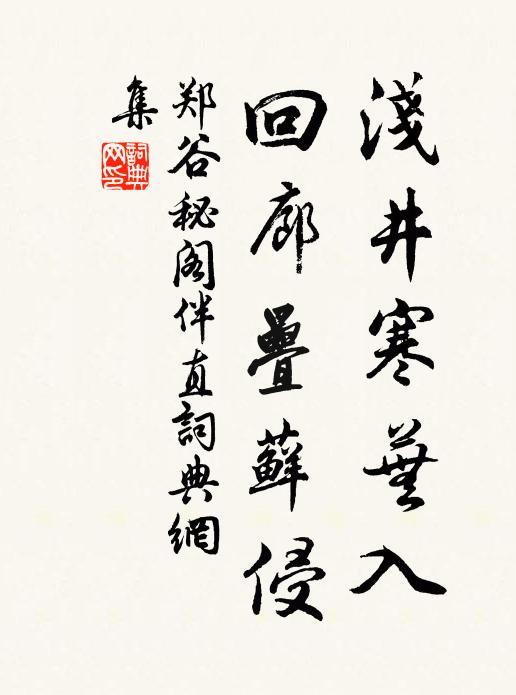 淺井寒蕪入
回廊疊蘚侵
郑谷秘阁伴直詞典網
集
詞典網印